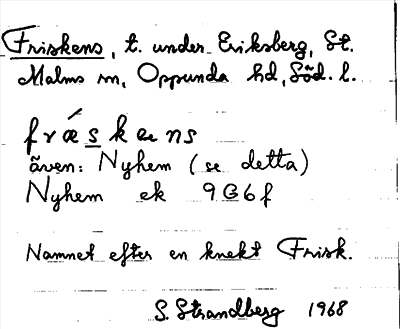 Friskens, t. under Eriksberg, St.
Malms sn, Oppunda hd, Söd. l.
frǽskens
även: Nyhem (se detta)
Nyhem ek 9G6f
Namnet efter en knekt Frisk.
S. Strandberg 1968